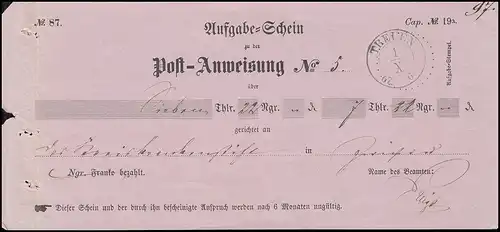 № 87.
Cap. № 19a.
97.
Aufgabe-Schein
zu der
Post-Anweisung No 5.
TREUEN
1
X
67
6
Aufgabe-Stempel.
über
Sieben Thlr. 22 Ngr. – ₰ 7 Thlr. 22 Ngr. – ₰
gerichtet an
in
Ngr. Franko bezahlt.
Name des Beamten:
Dieser Schein und der durch ihn bescheinigte Anspruch werden nach 6 Monaten ungültig.